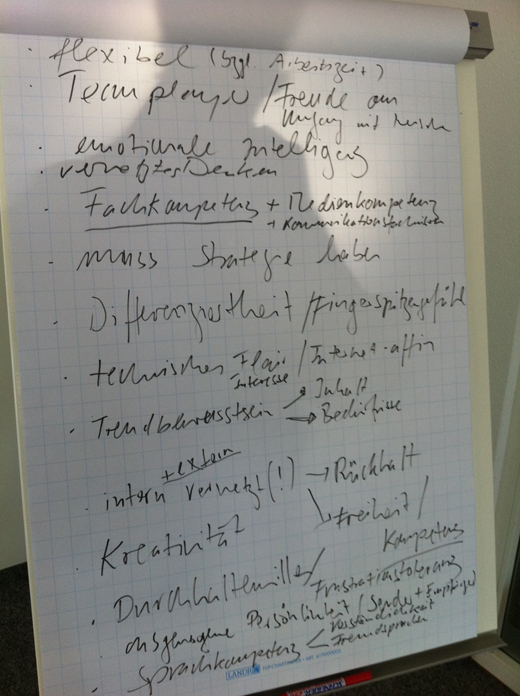 · flexibel (bzgl. Arbeitszeit)
· Teamplayer / Freude am
Umgang mit Menschen
· emotionale Intelligenz
· vernetztes Denken
· Fachkompetenz + Medienkompetenz
+ Kommunikationstechniken
· muss Strategie haben
· Differenziertheit / Fingerspitzengefühl
· technisches Flair / Internet-affin
Interesse
· Trendbewusstsein → Inhalt
→ Bedürfnisse
+ extern
· intern vernetzt (!) → Rückhalt
→ Freiheit /
Kompetenz
· Kreativität
· Durchhaltewillen /
Frustrationstoleranz
· Persönlichkeit (Sender + Empfänger)
· Sprachkompetenz < Verständlichkeit
Fremdsprachen
LANDRÉ